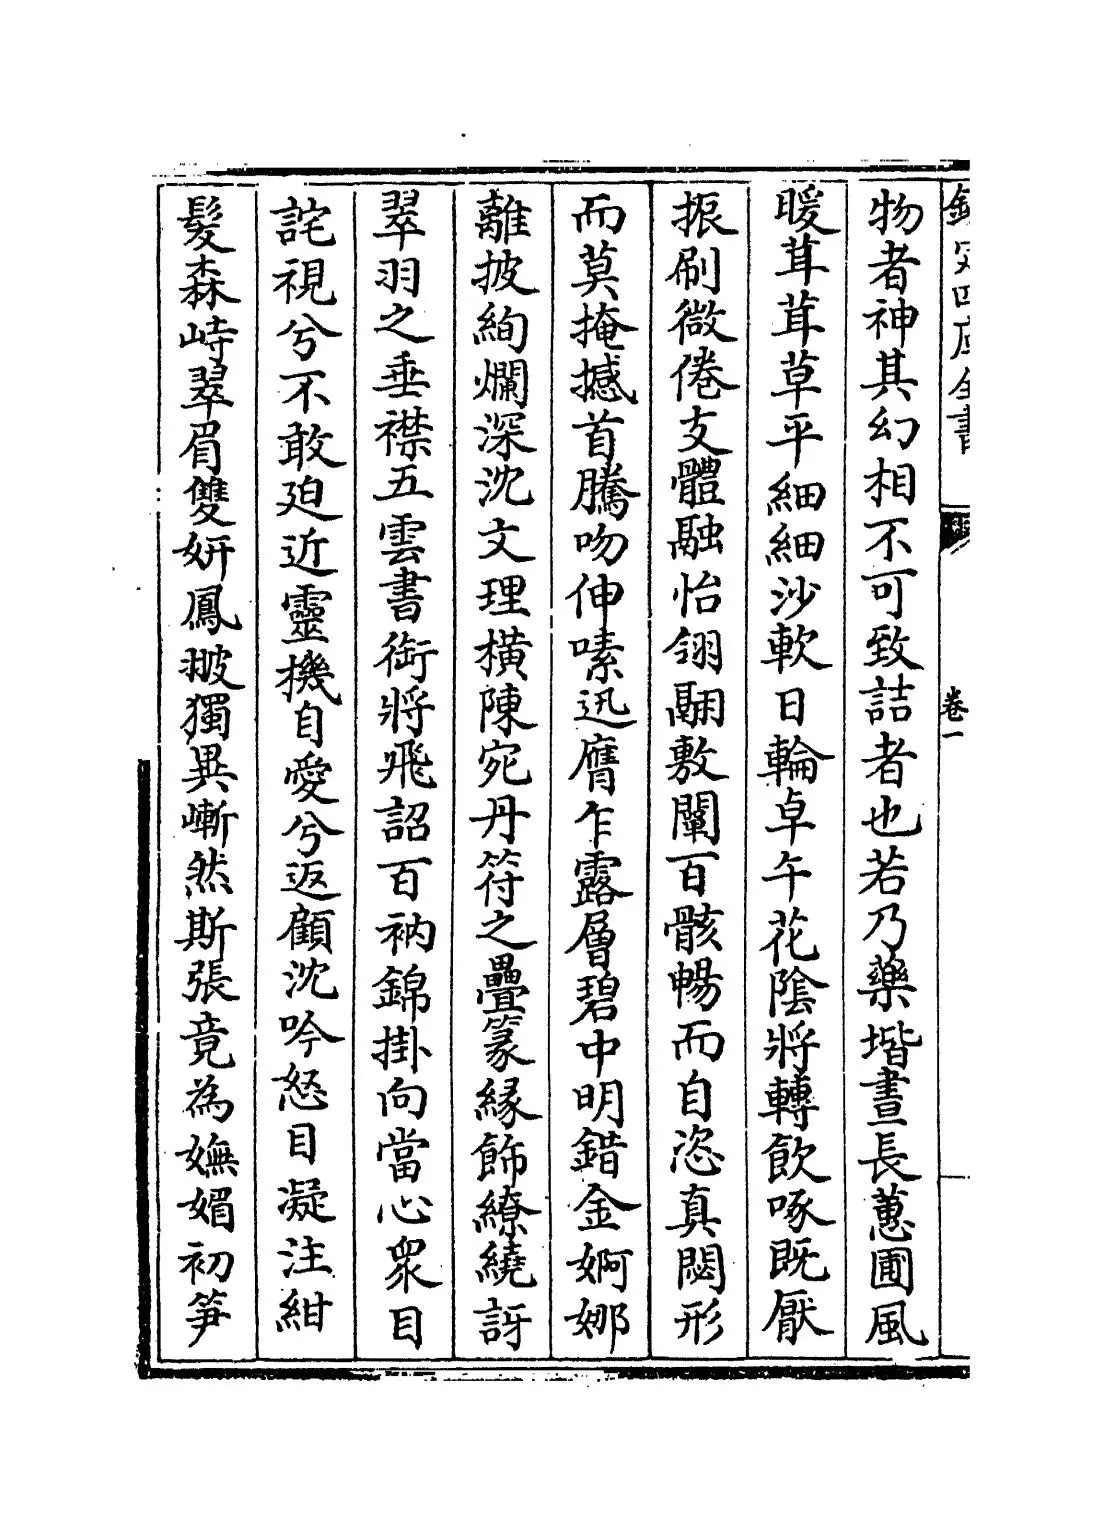 欽定四庫全書
卷一
物者神其幻相不可致詰者也若乃藥堦晝長蕙圃風
暖茸茸草平細細沙軟日輪卓午花陰將轉飲啄既厭
振刷微倦支體融怡翎翮敷闡百骸暢而自恣真閟形
而莫掩撼首騰吻伸嗉迅膺乍露層碧中明錯金婀娜
離披絢爛深沈文理橫陳宛丹符之疊篆緣飾繚繞訝
翠羽之垂襟五雲書銜將飛詔百衲錦掛向當心衆目
詫視兮不敢廹近靈機自愛兮返顧沈吟怒目凝注紺
髮森峙翠眉雙妍鳳㿱獨異嶃然斯張竟為嫵媚初笋